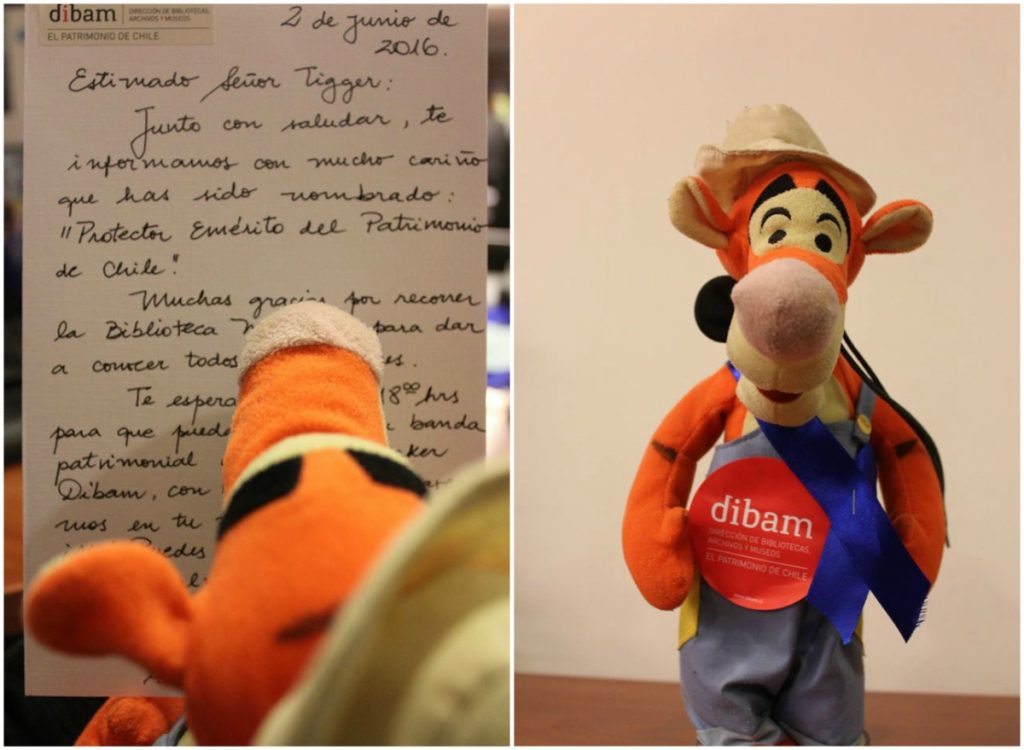 dibam
DIRECCIÓN DE BIBLIOTECAS,
ARCHIVOS Y MUSEOS
EL PATRIMONIO DE CHILE
2 de junio de
2016.
Estimado Señor Tigger:
Junto con saludar, te
informamos con mucho cariño
que has sido nombrado:
"Protector Emérito del Patrimonio
de Chile".
Muchas gracias por recorrer
la Biblioteca para dar
a conocer todos
Te 18ºº hrs
para que banda
patrimonial
Dibam, con
mos en tu
dibam
DIRECCIÓN DE BIBLIOTECAS,
ARCHIVOS Y MUSEOS
EL PATRIMONIO DE CHILE